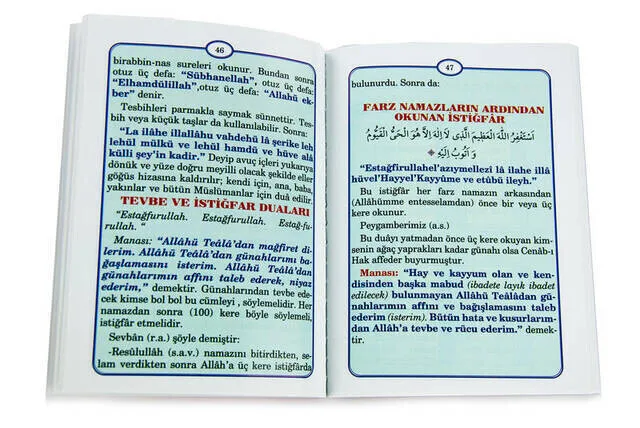 46
birabbin-nas sureleri okunur. Bundan sonra
otuz üç defa: "Sübhanellah", otuz üç defa:
"Elhamdülillah",otuz üç defa: "Allahü ek-
ber" denir.
Tesbihleri parmakla saymak sünnettir. Tes-
bih veya küçük taşlar da kullanılabilir. Sonra:
"La ilâhe illallahu vahdehû lâ şerike leh
lehül mülkü ve lehül hamdü ve hüve alâ
külli şey'in kadir." Deyip avuç içleri yukarıya
dönük ve yüze doğru meyilli olacak şekilde eller
göğüs hizasına kaldırılır; kendi için, ana, baba,
yakınlar ve bütün Müslümanlar için duâ edilir.
TEVBE VE İSTİĞFAR DUALARI
"Estağfurullah. Estağfurullah. Estağ-fu-
rullah. "
Manası: "Allâhü Teâlâ'dan mağfiret di-
lerim. Allâhü Teâlâ'dan günahlarımı ba-
ğaşlamasını isterim. Allâhü Teâlâ'dan
günahlarımın affını taleb ederek, niyaz
ederim," demektir. Günahlarından tevbe ede-
cek kimse bol bol bu cümleyi , söylemelidir. Her
namazdan sonra (100) kere böyle söylemeli,
istiğfâr etmelidir.
Sevbân (r.a.) şöyle demiştir:
-Resûlullâh (s.a.v.) namazını bitirdikten, se-
lam verdikten sonra Allâh'a üç kere istiğfârda
47
bulunurdu. Sonra da:
FARZ NAMAZLARIN ARDINDAN
OKUNAN İSTİĞFÂR
اَسْتَغْفِرُ اللهَ الْعَظِيمَ الَّذِى لَا اِلٰهَ اِلَّا هُوَ الْحَىُّ الْقَيُّومُ
وَ اَتُوبُ اِلَيْهِ
"Estağfirullahel'azıymellezi lâ ilahe illâ
hüvel'Hayyel'Kayyûme ve etûbü ileyh."
Bu istiğfâr her farz namazın arkasından
(Allahümme entesselamdan) önce bir veya üç
kere okunur.
Peygamberimiz (a.s.)
Bu duâyı yatmadan önce üç kere okuyan kim-
senin ağaç yaprakları kadar günahı olsa Cenâb-ı
Hak affeder buyurmuştur.
Manası: "Hay ve kayyum olan ve ken-
disinden başka mabud (ibadete layık ibadet
edilecek) bulunmayan Allâhü Teâlâdan gü-
nahlarımın affını ve bağışlamasını taleb
ederim (isterim). Bütün hata ve kusurlarım-
dan Allâh'a tevbe ve rücu ederim." demek-
tir.